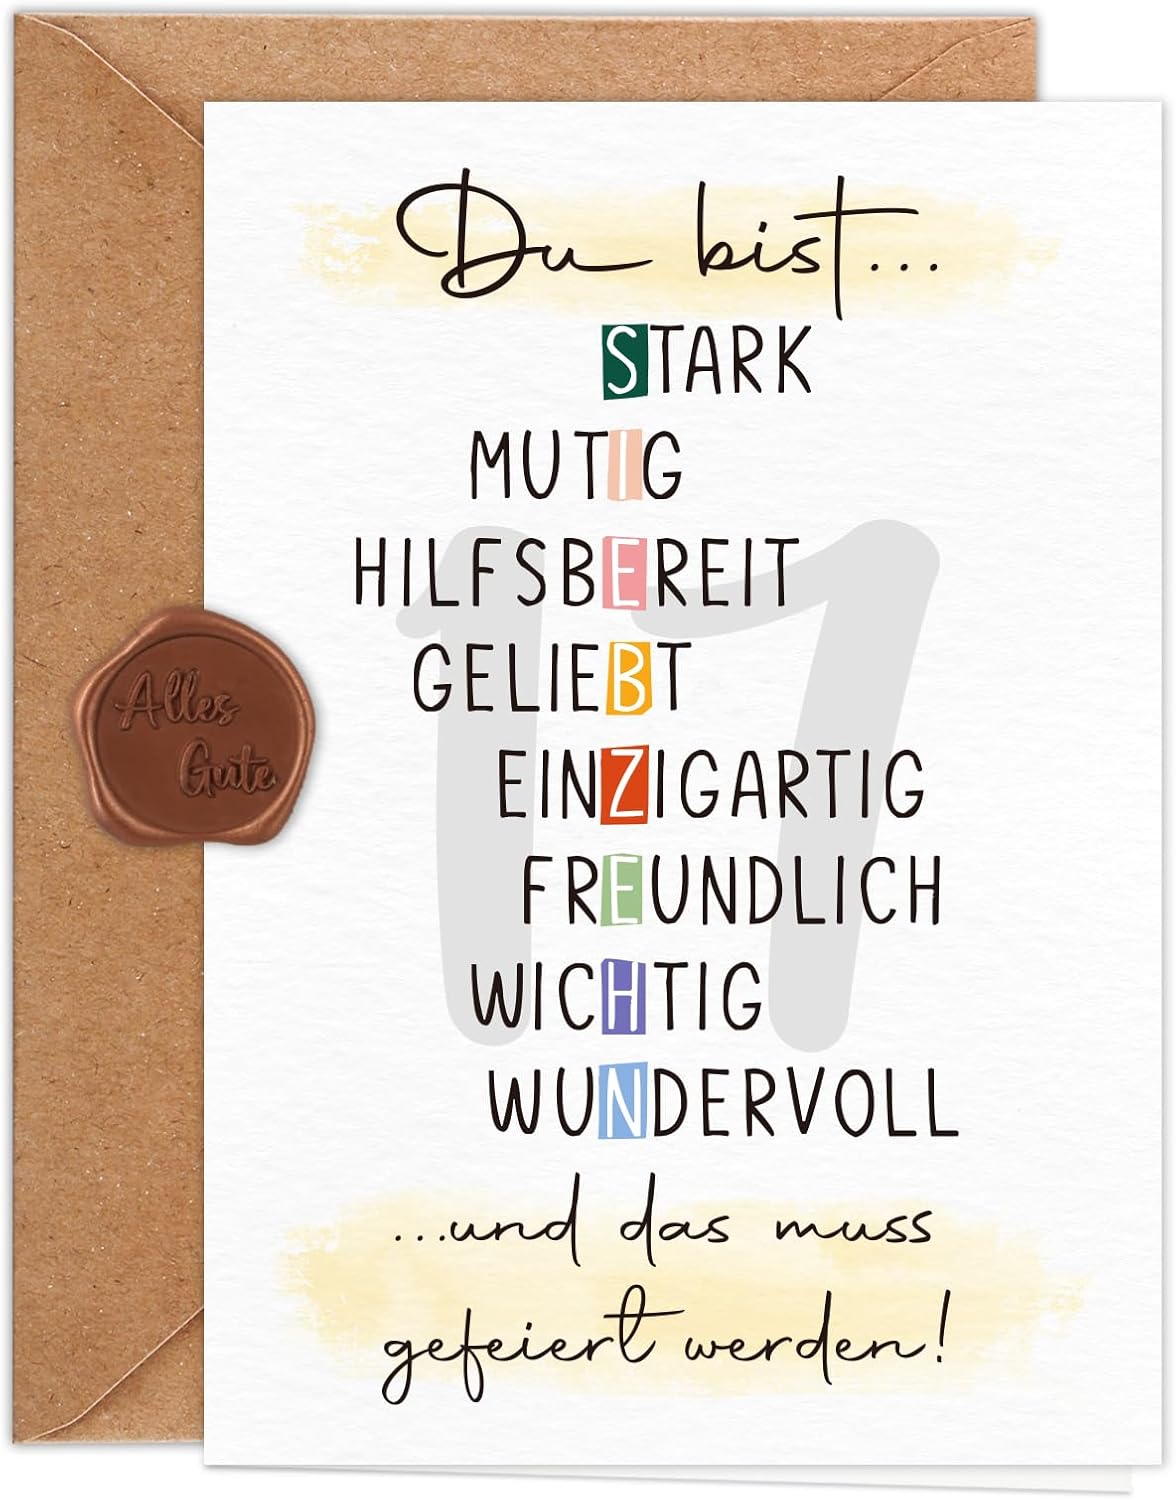 Du bist...
STARK
MUTIG
HILFSBEREIT
GELIEBT
EINZIGARTIG
FREUNDLICH
WICHTIG
WUNDERVOLL
...und das muss
gefeiert werden!
17
Alles
Gute